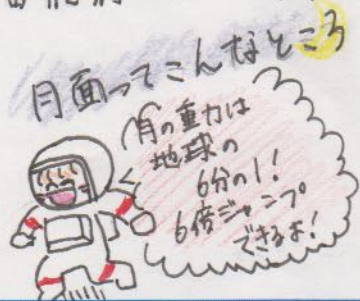 月面ってこんなところ
月の重力は
地球の
6分の1!
6倍ジャンプ
できるよ!